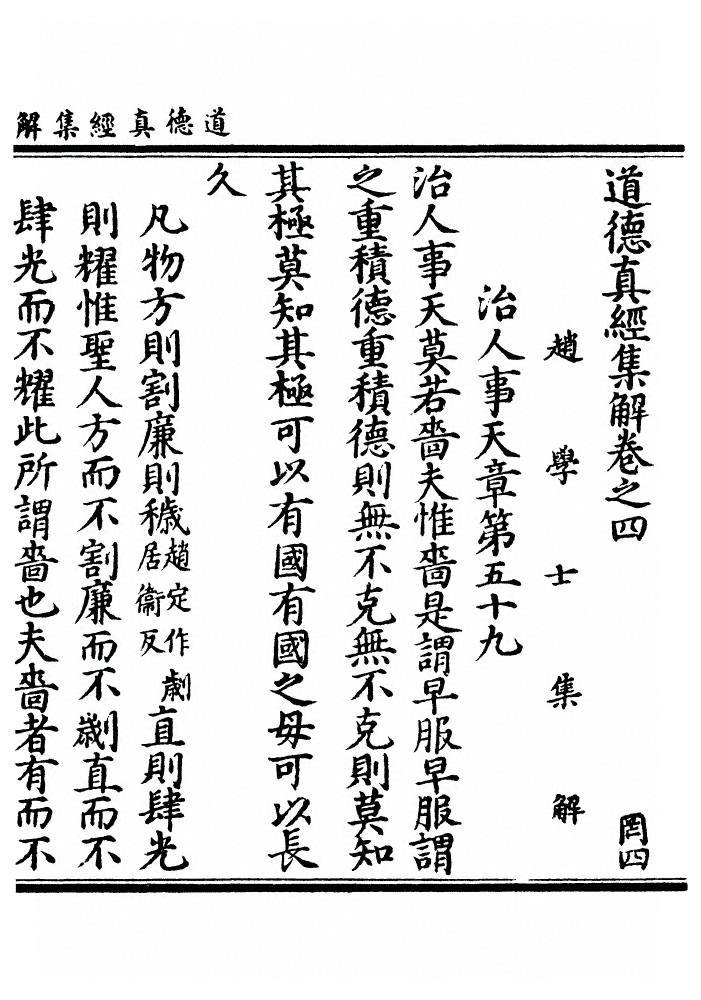 道德真經集解
道德真經集解卷之四 罔四
趙學士集解
治人事天章第五十九
治人事天莫若嗇夫惟嗇是謂早服早服謂
之重積德重積德則無不克無不克則莫知
其極莫知其極可以有國有國之母可以長
久
凡物方則割廉則穢趙定作劌居衞反直則肆光
則耀惟聖人方而不割廉而不劌直而不
肆光而不耀此所謂嗇也夫嗇者有而不